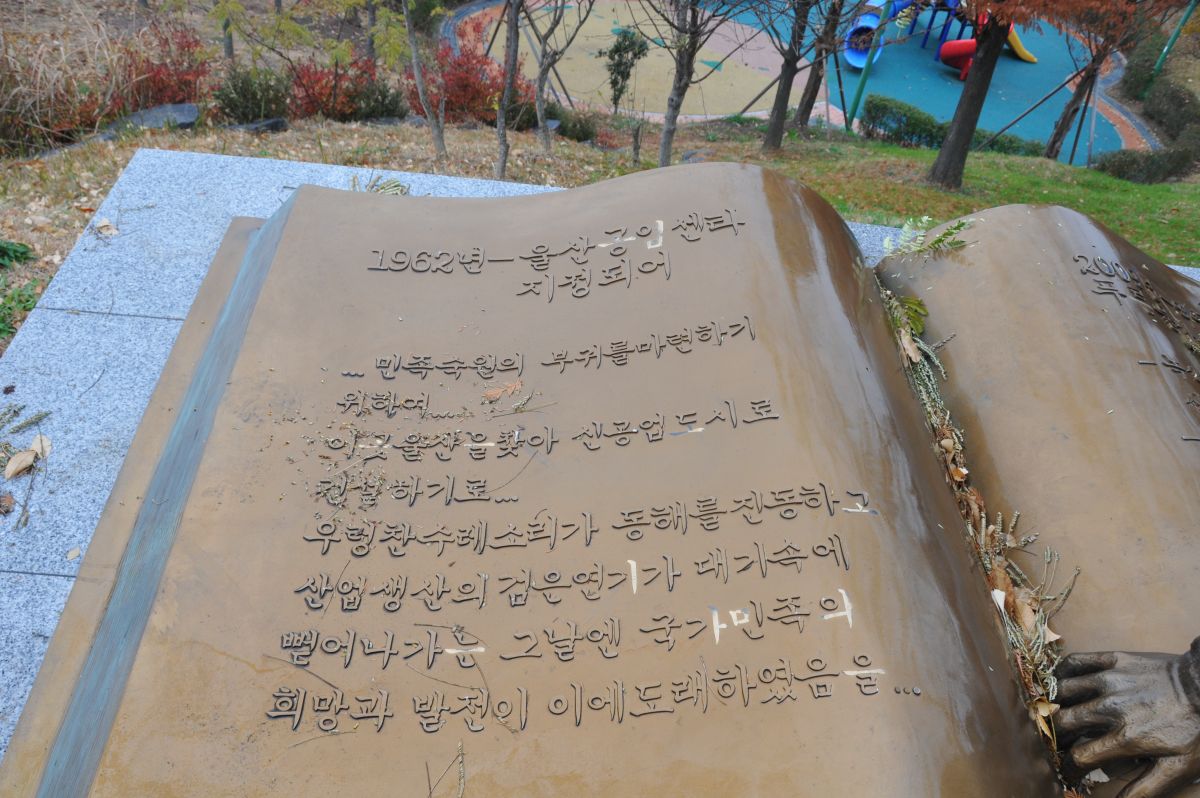 1962년—울산공업센타
지정되어
... 민족숙원의 부귀를마련하기
위하여....
이곳울산을찾아 신공업도시로
건설하기로...
우렁찬수레소리가 동해를진동하고
산업생산의 검은연기가 대기속에
뻗어나가는 그날엔 국가민족의
희망과 발전이 이에도래하였음을...